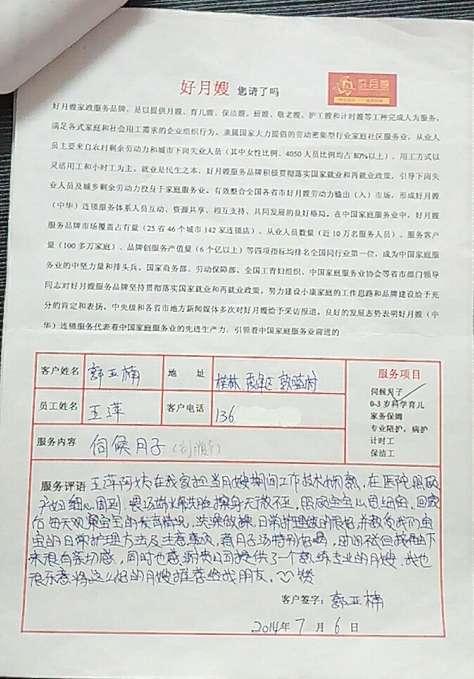 好月嫂 您请了吗
好月嫂
好月嫂家政服务品牌，是以提供月嫂、育儿嫂、保洁嫂、厨嫂、敬老嫂、护工嫂和计时嫂等工种完成人为服务，
满足各式家庭和社会用工需求的企业组织行为。隶属国家大力提倡的劳动密集型行业家庭社区服务业，从业人
员主要来自农村剩余劳动力和城市下岗失业人员（其中女性比例、4050 人员比例均占 80%以上），用工方式以
灵活用工和小时工为主。就业是民生之本，好月嫂服务品牌积极贯彻落实国家就业和再就业政策，引导下岗失
业人员及城乡剩余劳动力投身于家庭服务业。有效整合全国各省市好月嫂劳动力输出（入）市场，形成好月嫂
（中华）连锁服务体系人员互动、资源共享、相互支持、共同发展的良好格局。在中国家庭服务业中，好月嫂
服务品牌市场覆盖占有量（25 省 46 个城市 142 家连锁店）、从业人员数量（近 10 万名服务人员）、服务客户
量（100 多万家庭）、品牌创服务产值量（6 个亿以上）等四项指标均排名全国同行业第一位，成为中国家庭服
务业的中坚力量和排头兵。国家商务部、劳动保障部、全国工青妇组织、中国家庭服务业协会等省市部门领导
同志对好月嫂服务品牌坚持贯彻落实国家就业和再就业政策，努力建设小康家庭的工作思路和品牌建设给予充
分的肯定和表扬。中央级和各省市地方新闻媒体多次对好月嫂给予采访报道，良好的发展态势表明好月嫂（中
华）连锁服务代表着中国家庭服务业的先进生产力，引领着中国家庭服务业前进的
客户姓名 郭亚楠 地 址 桂林 服务项目
员工姓名 王萍 客户电话 136
伺候月子
0-3 岁科学育儿
家务保姆
专业陪护，病护
计时工
保洁工
服务内容 伺候月子
服务评语 王萍阿姨在我家的当月嫂期间工作技术娴熟，在医院照顾
产妇细心周到，擦身无微不至，照顾宝宝心思细密，回家
后每天观察宝宝的发育情况，日常护理做的很好，并教会我们宝
宝的日常护理方法及注意事项，
来很有亲切感，同时也感谢贵公司提供了个熟练专业的月嫂，我也
很乐意将这么好的月嫂推荐给我朋友。♡赞
客户签字：郭亚楠
2014年7月6日